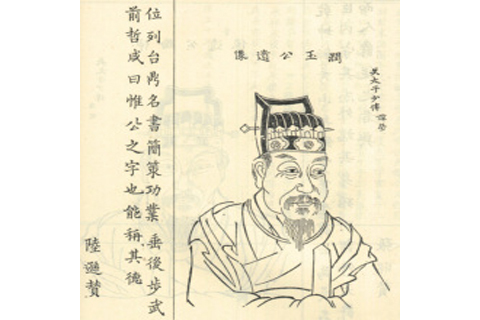 潤玉公遺像
吳太子少傅 諱瑩
位列台鼎名書簡策功業垂後步武
前哲咸曰惟公之字也能稱其德
陸遜贊